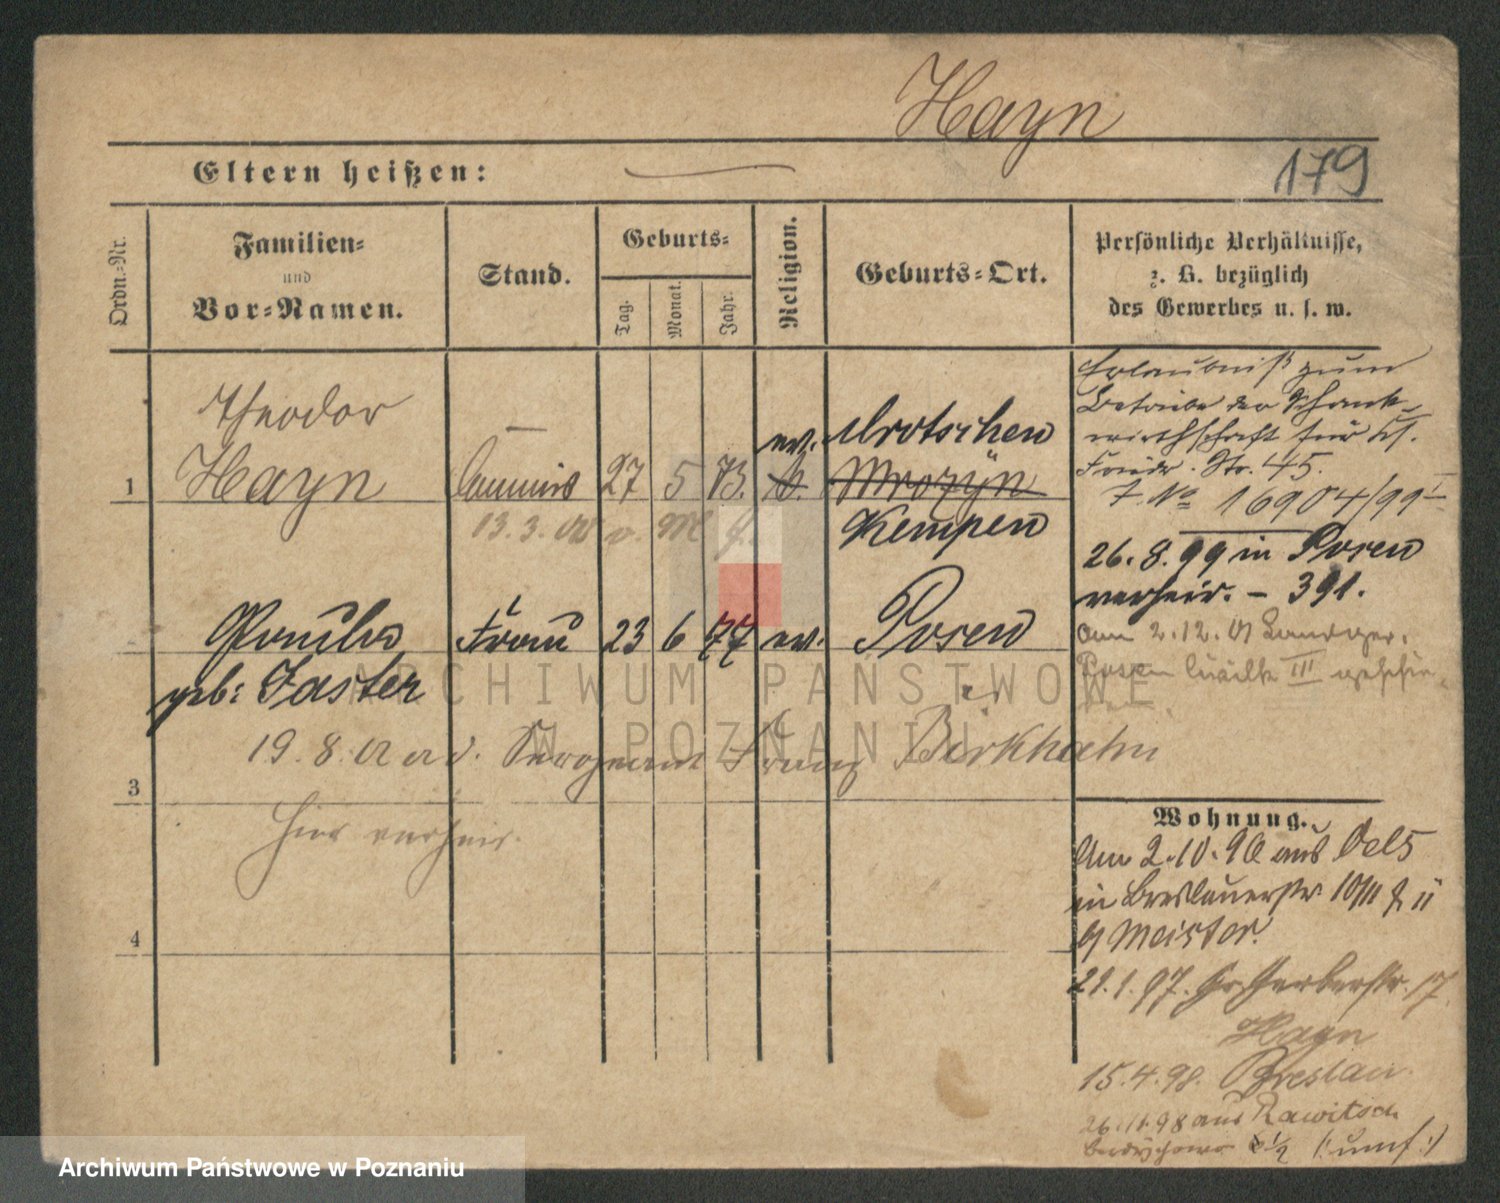 Hayn
179
Eltern heißen:
Ordn.-Nr.
Familien-
und
Vor-Namen.
Stand.
Geburts-
Tag.
Monat.
Jahr.
Religion.
Geburts-Ort.
Persönliche Verhältnisse,
z. B. bezüglich
des Gewerbes u. s. w.
Theodor
Hayn
1
Commis
27
5
73.
ev.
Mrotschen
Mrozyn
Kempen
13.3.
Erlaubniß zum
Betriebe der Schank-
wirthschaft für
Friedr. Str. 45.
No 16904/99
26.8.99 in Posen
verheir. - 391.
Am 2.12.01 Landger.
Posen III
Frau
23
6
77
ev.
Posen
geb: Jaster
19.8. Sergeant Franz Birkhahn
hier verheir.
3
4
Wohnung.
Am 2.10.96 aus Oels
in Breslauerstr. 10/11
b/ Meister.
21.1.97. Gr. Gerberstr. 17
Hayn
15.4.98. Breslau.
26.11.98 aus Rawitsch
ARCHIWUM PAŃSTWOWE
W POZNANIU
Archiwum Państwowe w Poznaniu